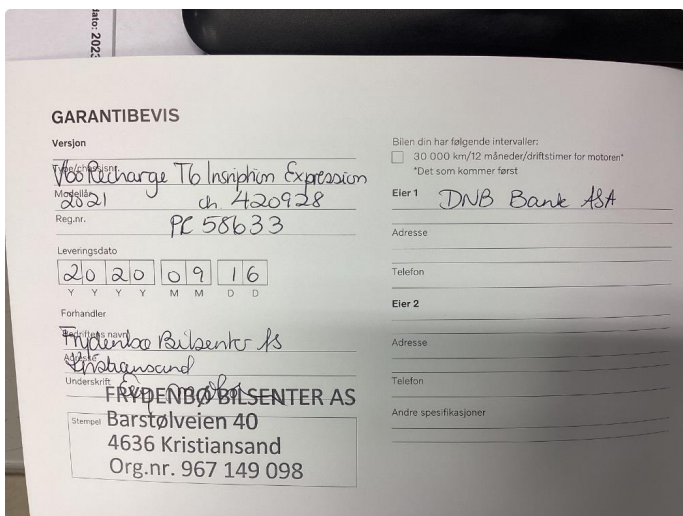 dato: 2023
GARANTIBEVIS
Versjon
Type/chassisnr.
V60 Recharge T6 Insription Expression
Modellår
2021 ch. 420928
Reg.nr. PC 58633
Leveringsdato
2020 09 16
Y Y Y Y M M D D
Forhandler
Bedriftens navn
Frydenbø Bilsenter AS
Adresse
Kristiansand
Underskrift
FRYDENBØ BILSENTER AS
Stempel
Barstølveien 40
4636 Kristiansand
Org.nr. 967 149 098
Bilen din har følgende intervaller:
30 000 km/12 måneder/driftstimer for motoren*
*Det som kommer først
Eier 1 DNB Bank ASA
Adresse
Telefon
Eier 2
Adresse
Telefon
Andre spesifikasjoner